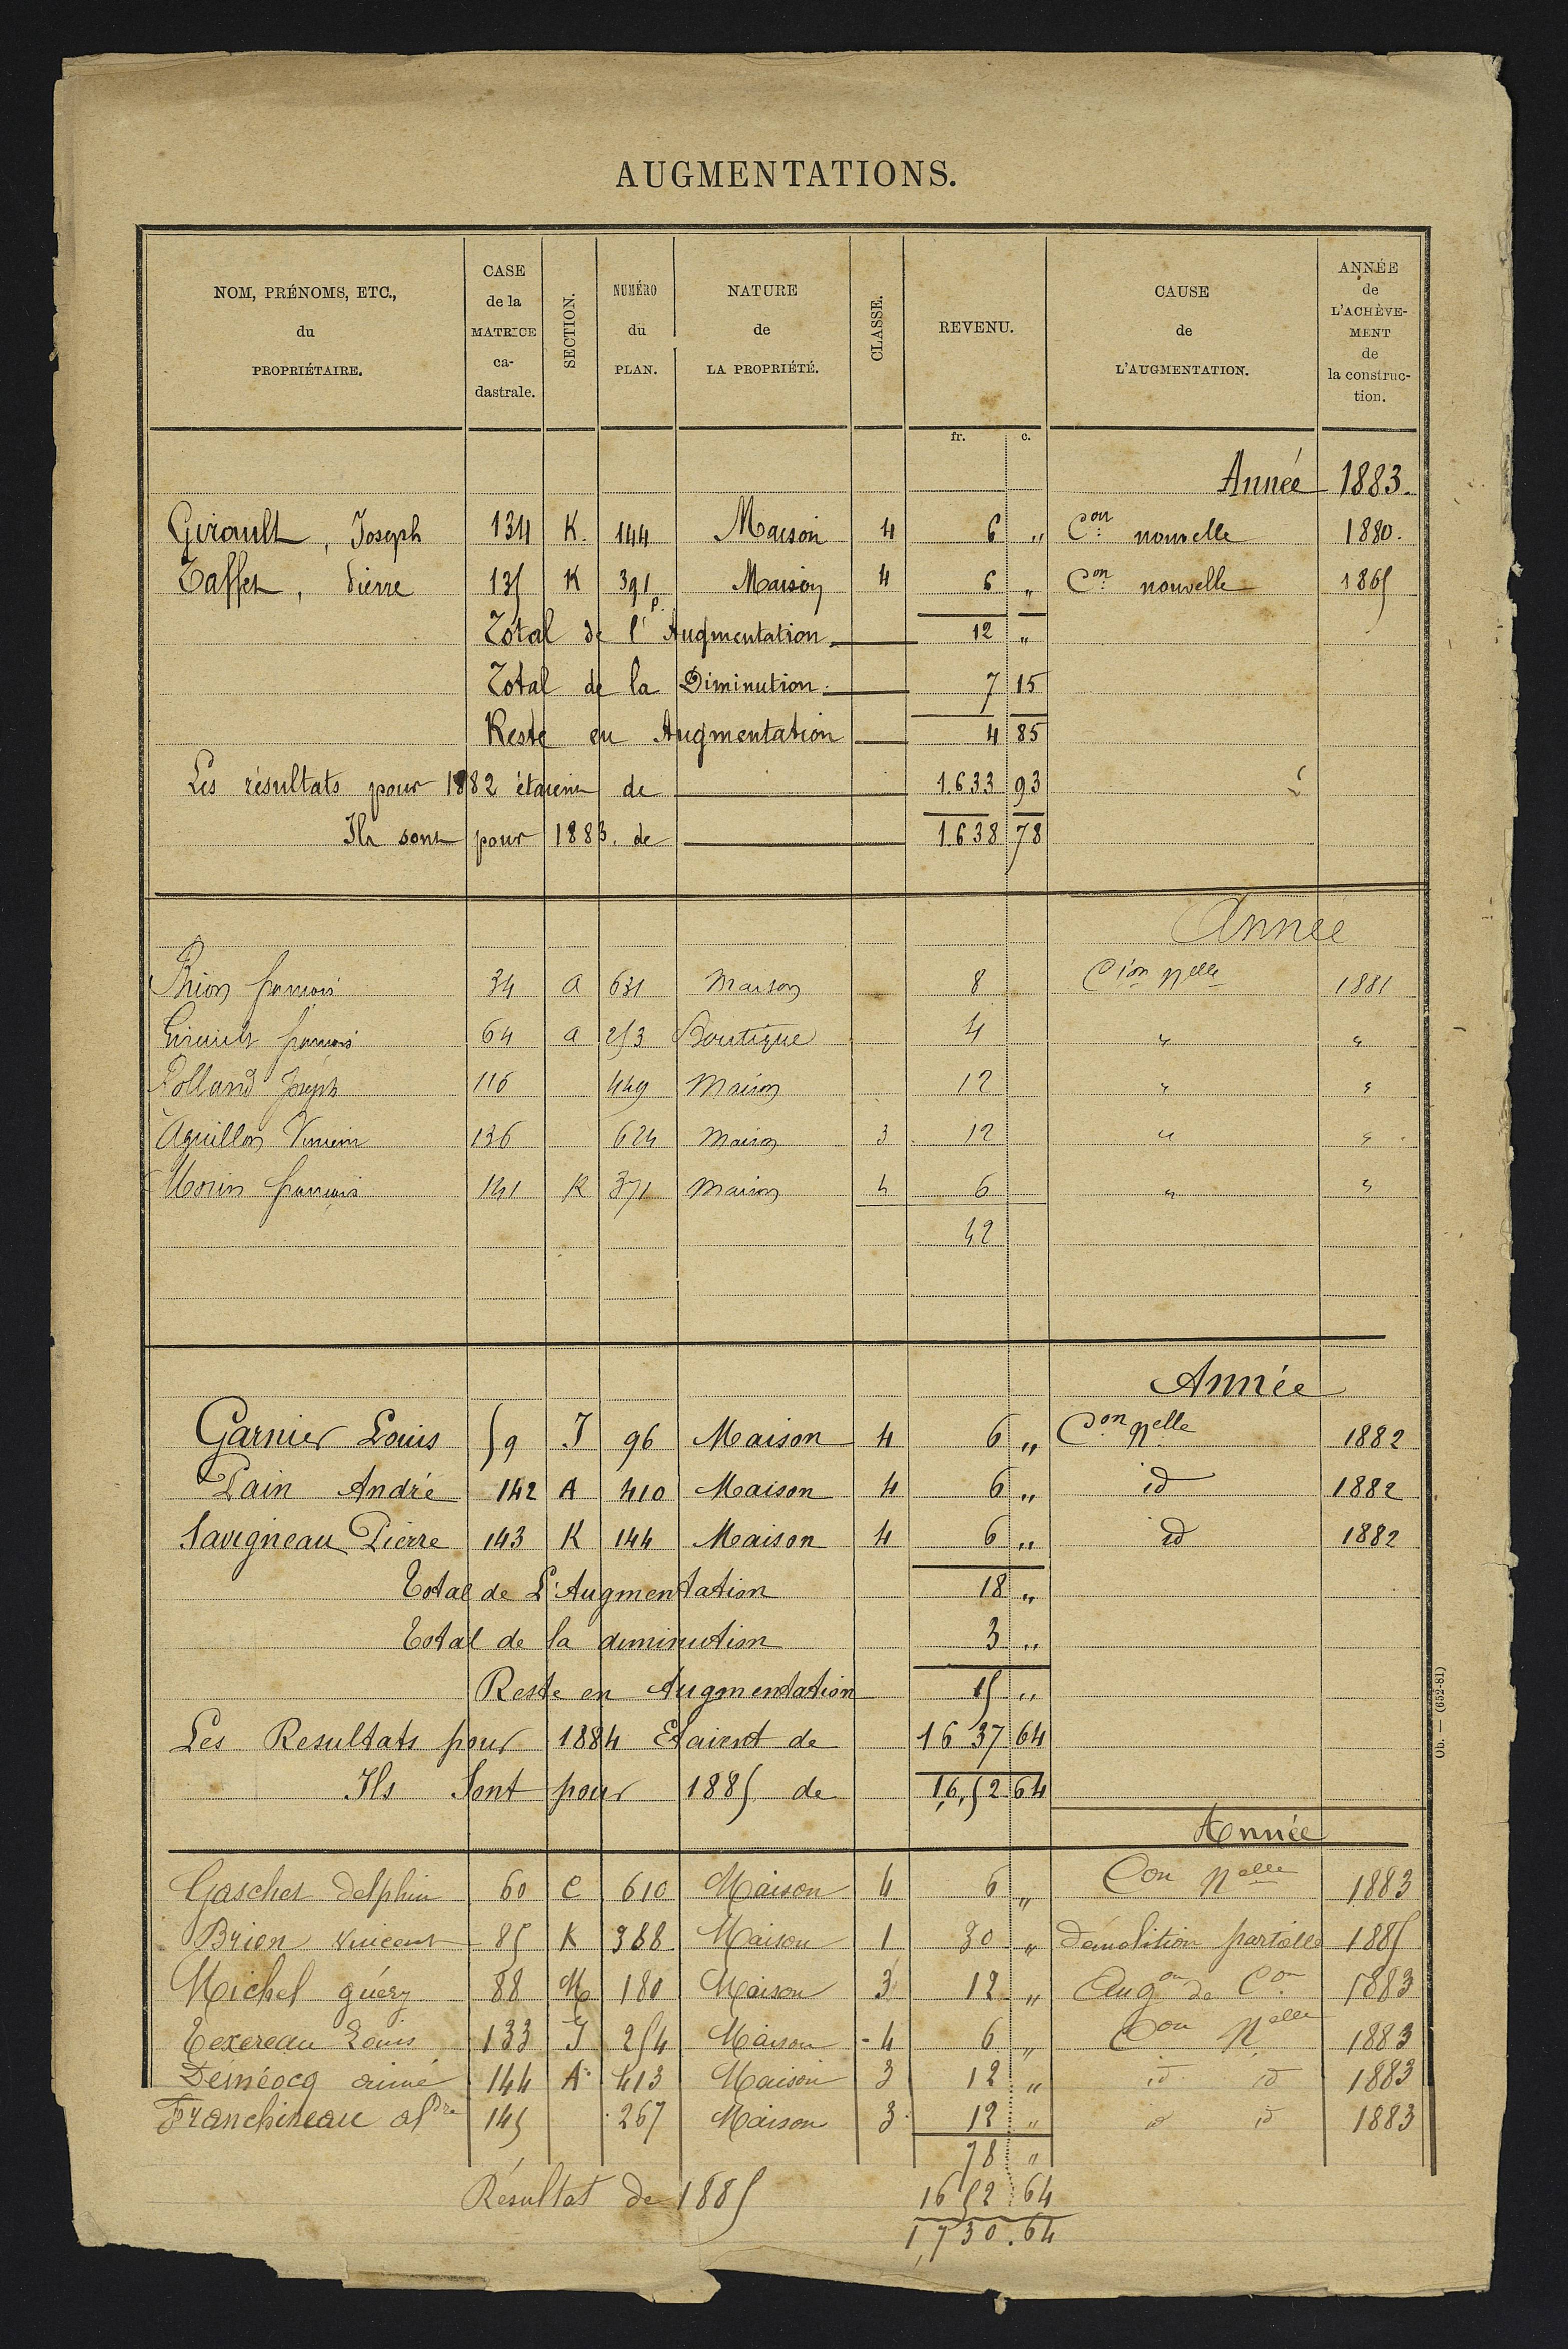 AUGMENTATIONS.
NOM, PRÉNOMS, ETC., du PROPRIÉTAIRE. CASE de la MATRICE ca- dastrale. SECTION. NUMÉRO du PLAN. NATURE de LA PROPRIÉTÉ. CLASSE. REVENU. CAUSE de L'AUGMENTATION. ANNÉE de L'ACHÈVE- MENT de la construc- tion.
fr. c.
Année 1883.
Girault, Joseph 134 K. 144 Maison 4 6 " Con nouvelle 1880.
Taffet, Pierre 135 K 391 p. Maison 4 6 " Con nouvelle 1865
Total de l'Augmentation 12 "
Total de la Diminution. 7 15
Reste en Augmentation 4 85
Les résultats pour 1882 étaient de 1.633 93
Ils sont pour 1883. de 1.638 78
Année
Brion françois 34 a 631 Maison 8 Cion Nelle 1881
Girault françois 64 a 253 Boutique 4 " "
Rolland Joseph 116 449 Maison 12 " "
Aguillon Vincent 136 624 Maison 3 12 " "
Morin françois 141 K 371 Maison 4 6 " "
42
Année
Garnier Louis 59 J 96 Maison 4 6 " Con Nelle 1882
Pain André 142 A 410 Maison 4 6 " id 1882
Savigneau Pierre 143 K 144 Maison 4 6 " id 1882
Total de L'Augmentation 18 "
Total de la diminution 3 "
Reste en Augmentation 15 "
Les Resultats pour 1884 Etaient de 16 37 64
Ils Sont pour 1885 de 16,52 64
Année
Gaschet Delphin 60 C 610 Maison 4 6 " Con Nelle 1883
Brion Vincent 85 K 388 Maison 1 30 " démolition partielle 1885
Michel guéry 88 M 180 Maison 3 12 " Augon de Con 1883
Texereau Louis 133 J 254 Maison 4 6 " Con Nelle 1883
Deinéocq aimé 144 A 413 Maison 3 12 " id id 1883
Franchineau aldre 145 267 Maison 3 12 " id id 1883
78 "
Résultat de 1885 1652 64
1,730.64
Ob. — (652-81)